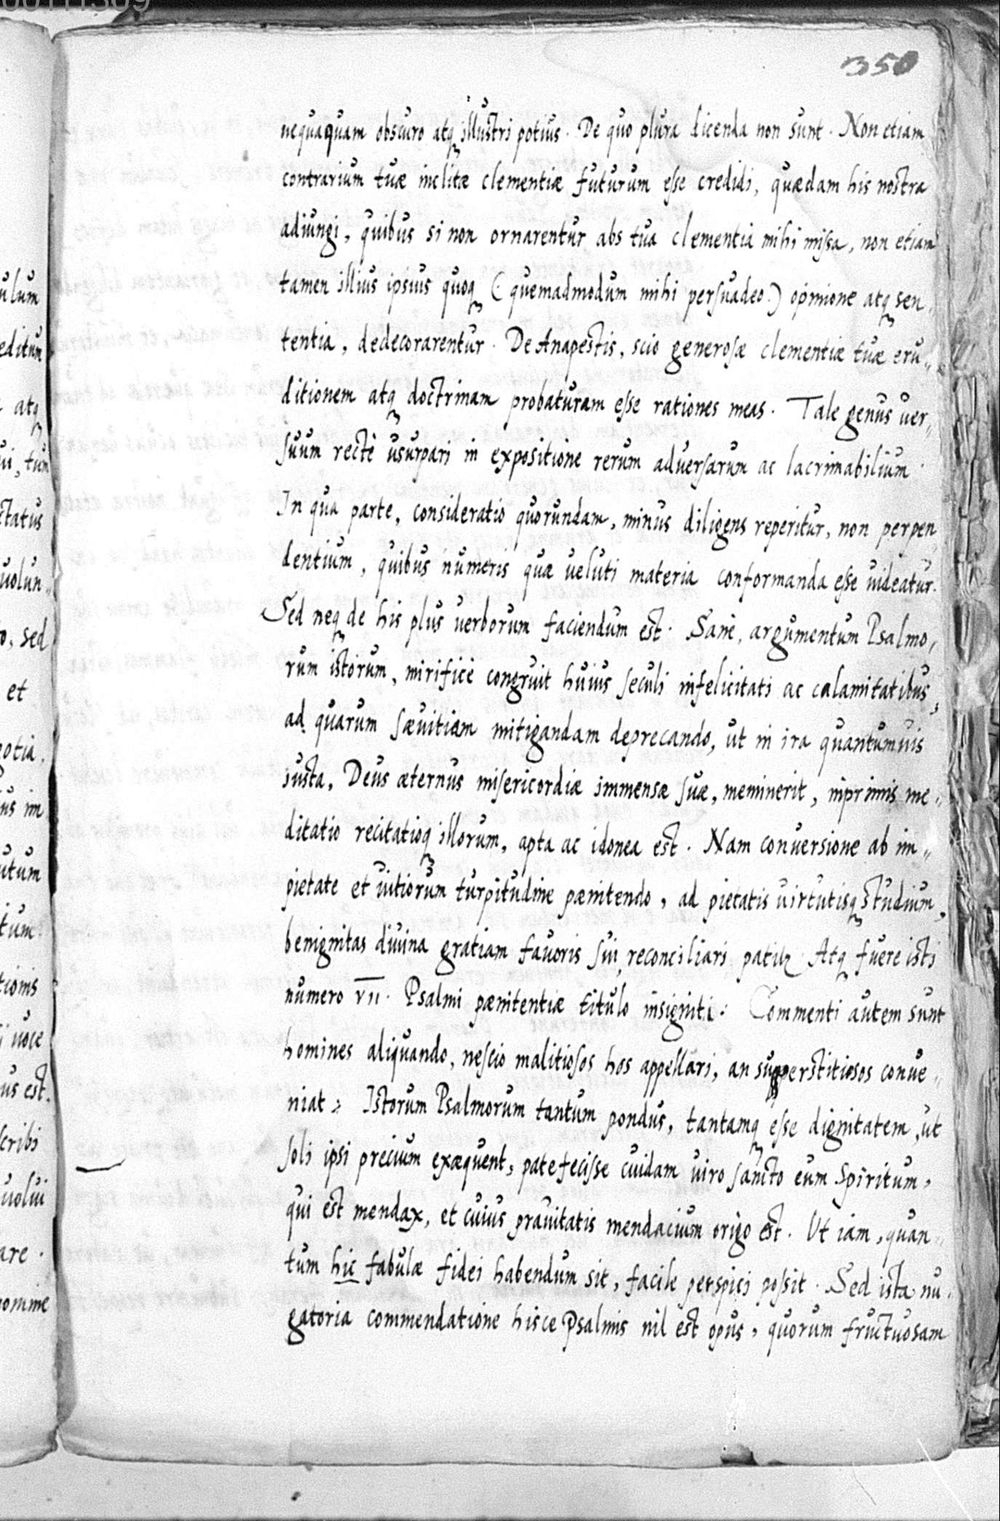 350
nequaquam obscuro atq illustri potius. De quo plura dicenda non sunt. Non etiam
contrarium tuæ inclitæ clementiæ futurum esse credidi, quædam his nostra
adiungi, quibus si non ornarentur abs tua clementia mihi missa, non etiam
tamen illius ipsius quoq (quemadmodum mihi persuadeo) opinione atq sen„
tentia, dedecorarentur. De Anapestis, scio generosæ clementiæ tuæ eru„
ditionem atq doctrinam probaturam esse rationes meas. Tale genus uer„
suum rectè usurpari in expositione rerum aduersarum ac lacrimabilium.
In qua parte, consideratio quorundam, minus diligens reperitur, non perpen
dentium, quibus numeris quæ ueluti materia conformanda esse uideatur.
Sed neq de his plus uerborum faciendum est. Sanè, argumentum Psalmo,
rum istorum, mirificè congruit huius seculi infelicitati ac calamitatibus,
ad quarum sæuitiam mitigandam deprecando, ut in ira quantumuis
iusta, Deus æternus misericordiæ immensæ suæ, meminerit, inprimis me„
ditatio recitatioq illorum, apta ac idonea est. Nam conuersione ab im„
pietate et uitiorum turpitudine pænitendo, ad pietatis uirtutisq studium,
benignitas diuina gratiam fauoris sui reconciliari patitr. Atq fuere isti
numero VII. Psalmi pænitentiæ titulo insigniti. Commenti autem sunt
homines aliquando, nescio malitiosos hos appellari, an superstitiosos conue„
niat, Istorum Psalmorum tantum pondus, tantamq esse dignitatem, ut
soli ipsi precium exæquent, patefecisse cuidam uiro sancto eum Spiritum,
qui est mendax, et cuius prauitatis mendacium origo est. Ut iam, quan„
tum hic fabulæ fidei habendum sit, facile perspici possit. Sed ista nu„
gatoria commendatione hisce Psalmis nil est opus, quorum fructuosam